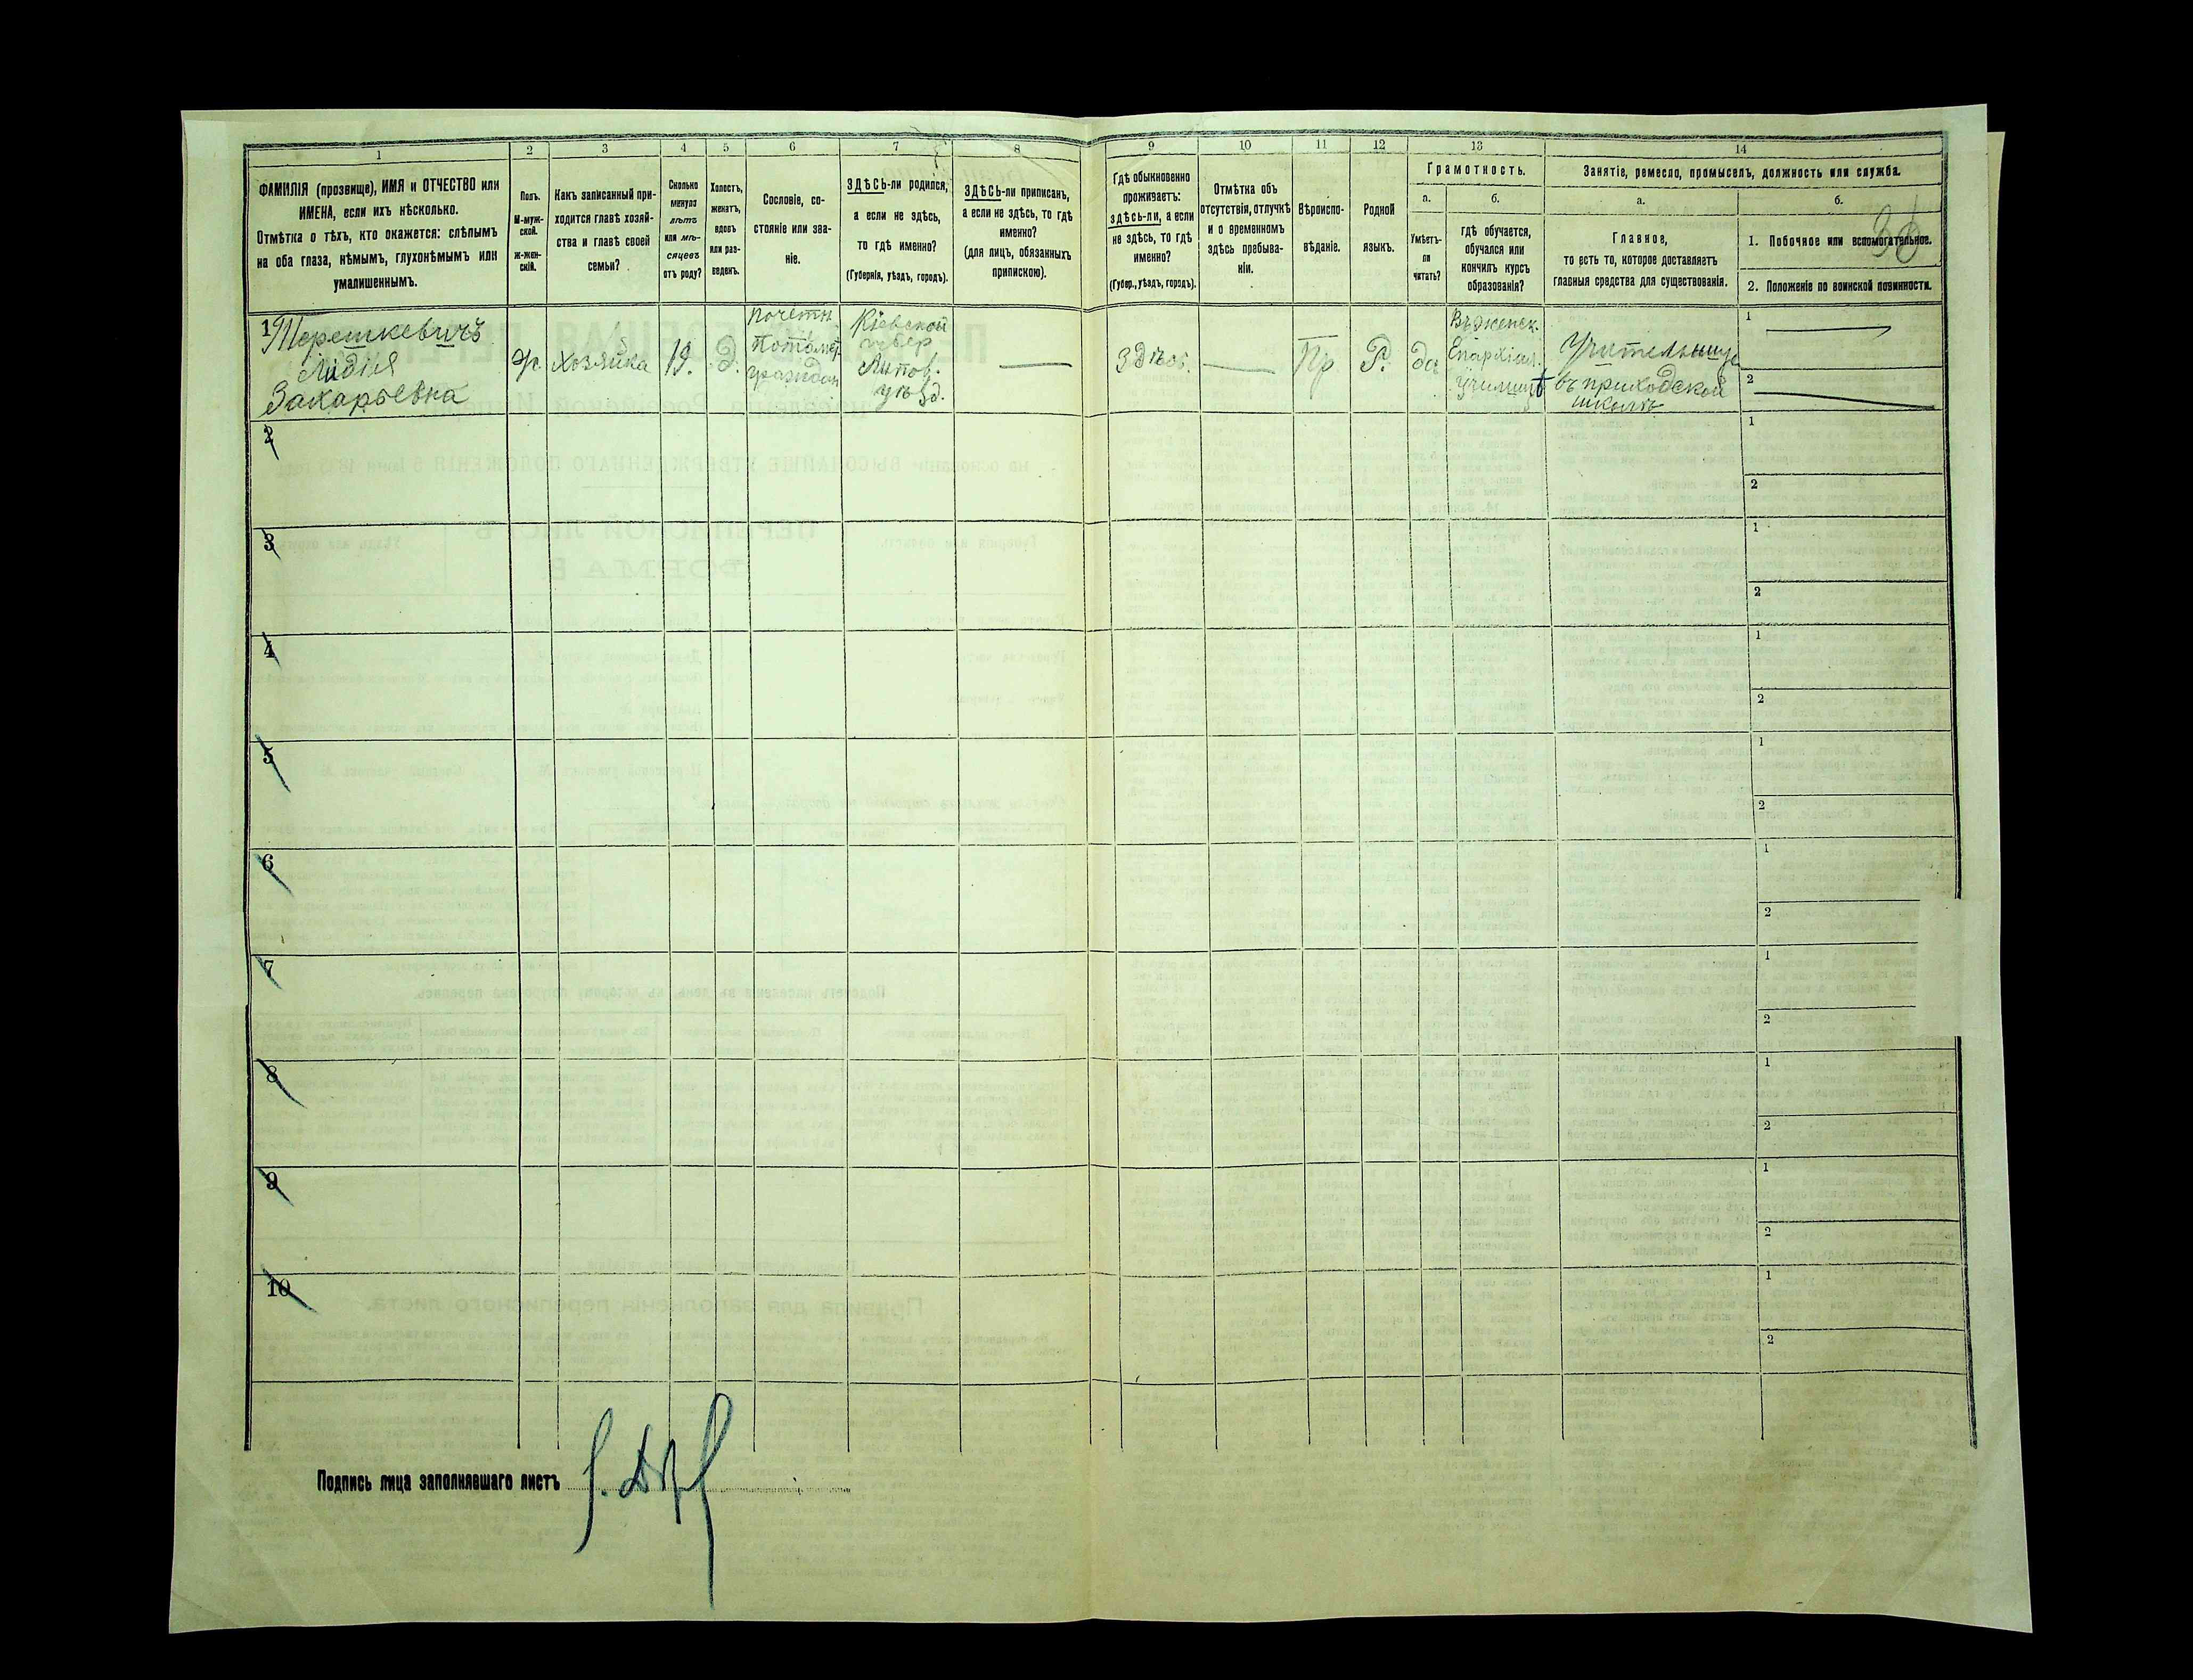 1 2 3 4 5 6 7 8 9 10 11 12 13 14
ФАМИЛІЯ (прозвище), ИМЯ и ОТЧЕСТВО или
ИМЕНА, если ихъ нѣсколько.
Отмѣтка о тѣхъ, кто окажется: слѣпымъ
на оба глаза, нѣмымъ, глухонѣмымъ или
умалишеннымъ.
Полъ.
М-муж-
ской.
Ж-жен-
скій.
Какъ записанный при-
ходится главѣ хозяй-
ства и главѣ своей
семьи?
Сколько
минуло
лѣтъ
или мѣ-
сяцевъ
отъ роду?
Холостъ,
женатъ,
вдовъ
или раз-
веденъ.
Сословіе, со-
стояніе или зва-
ніе.
ЗДѢСЬ-ли родился,
а если не здѣсь,
то гдѣ именно?
(Губернія, уѣздъ, городъ).
ЗДѢСЬ-ли приписанъ,
а если не здѣсь, то гдѣ
именно?
(для лицъ, обязанныхъ
припискою).
Гдѣ обыкновенно
проживаетъ:
здѣсь-ли, а если
не здѣсь, то гдѣ
именно?
(Губер., уѣздъ, городъ).
Отмѣтка объ
отсутствіи, отлучкѣ
и о временномъ
здѣсь пребыва-
ніи.
Вѣроиспо-
вѣданіе.
Родной
языкъ.
Грамотность.
а.
Умѣетъ-
ли
читать?
б.
гдѣ обучается,
обучался или
кончилъ курсъ
образованія?
Занятіе, ремесло, промыселъ, должность или служба.
а.
Главное,
то есть то, которое доставляетъ
главныя средства для существованія.
б.
1. Побочное или вспомогательное.
2. Положеніе по воинской повинности.
1
Терешкевичъ
Лидія
Захарьевна
Ж
хозяйка
19.
Д.
почетн
потомст.
граждан
Кіевской
губер
Липов.
уѣзд.
Здѣсь.
Пр
Р.
да
Въ женск.
Епархіал.
училищѣ
Учительница
въ приходской
школѣ
1
2
2
1
2
3
1
2
4
1
2
5
1
2
6
1
2
7
1
2
8
1
2
9
1
2
10
1
2
Подпись лица заполнявшаго листъ